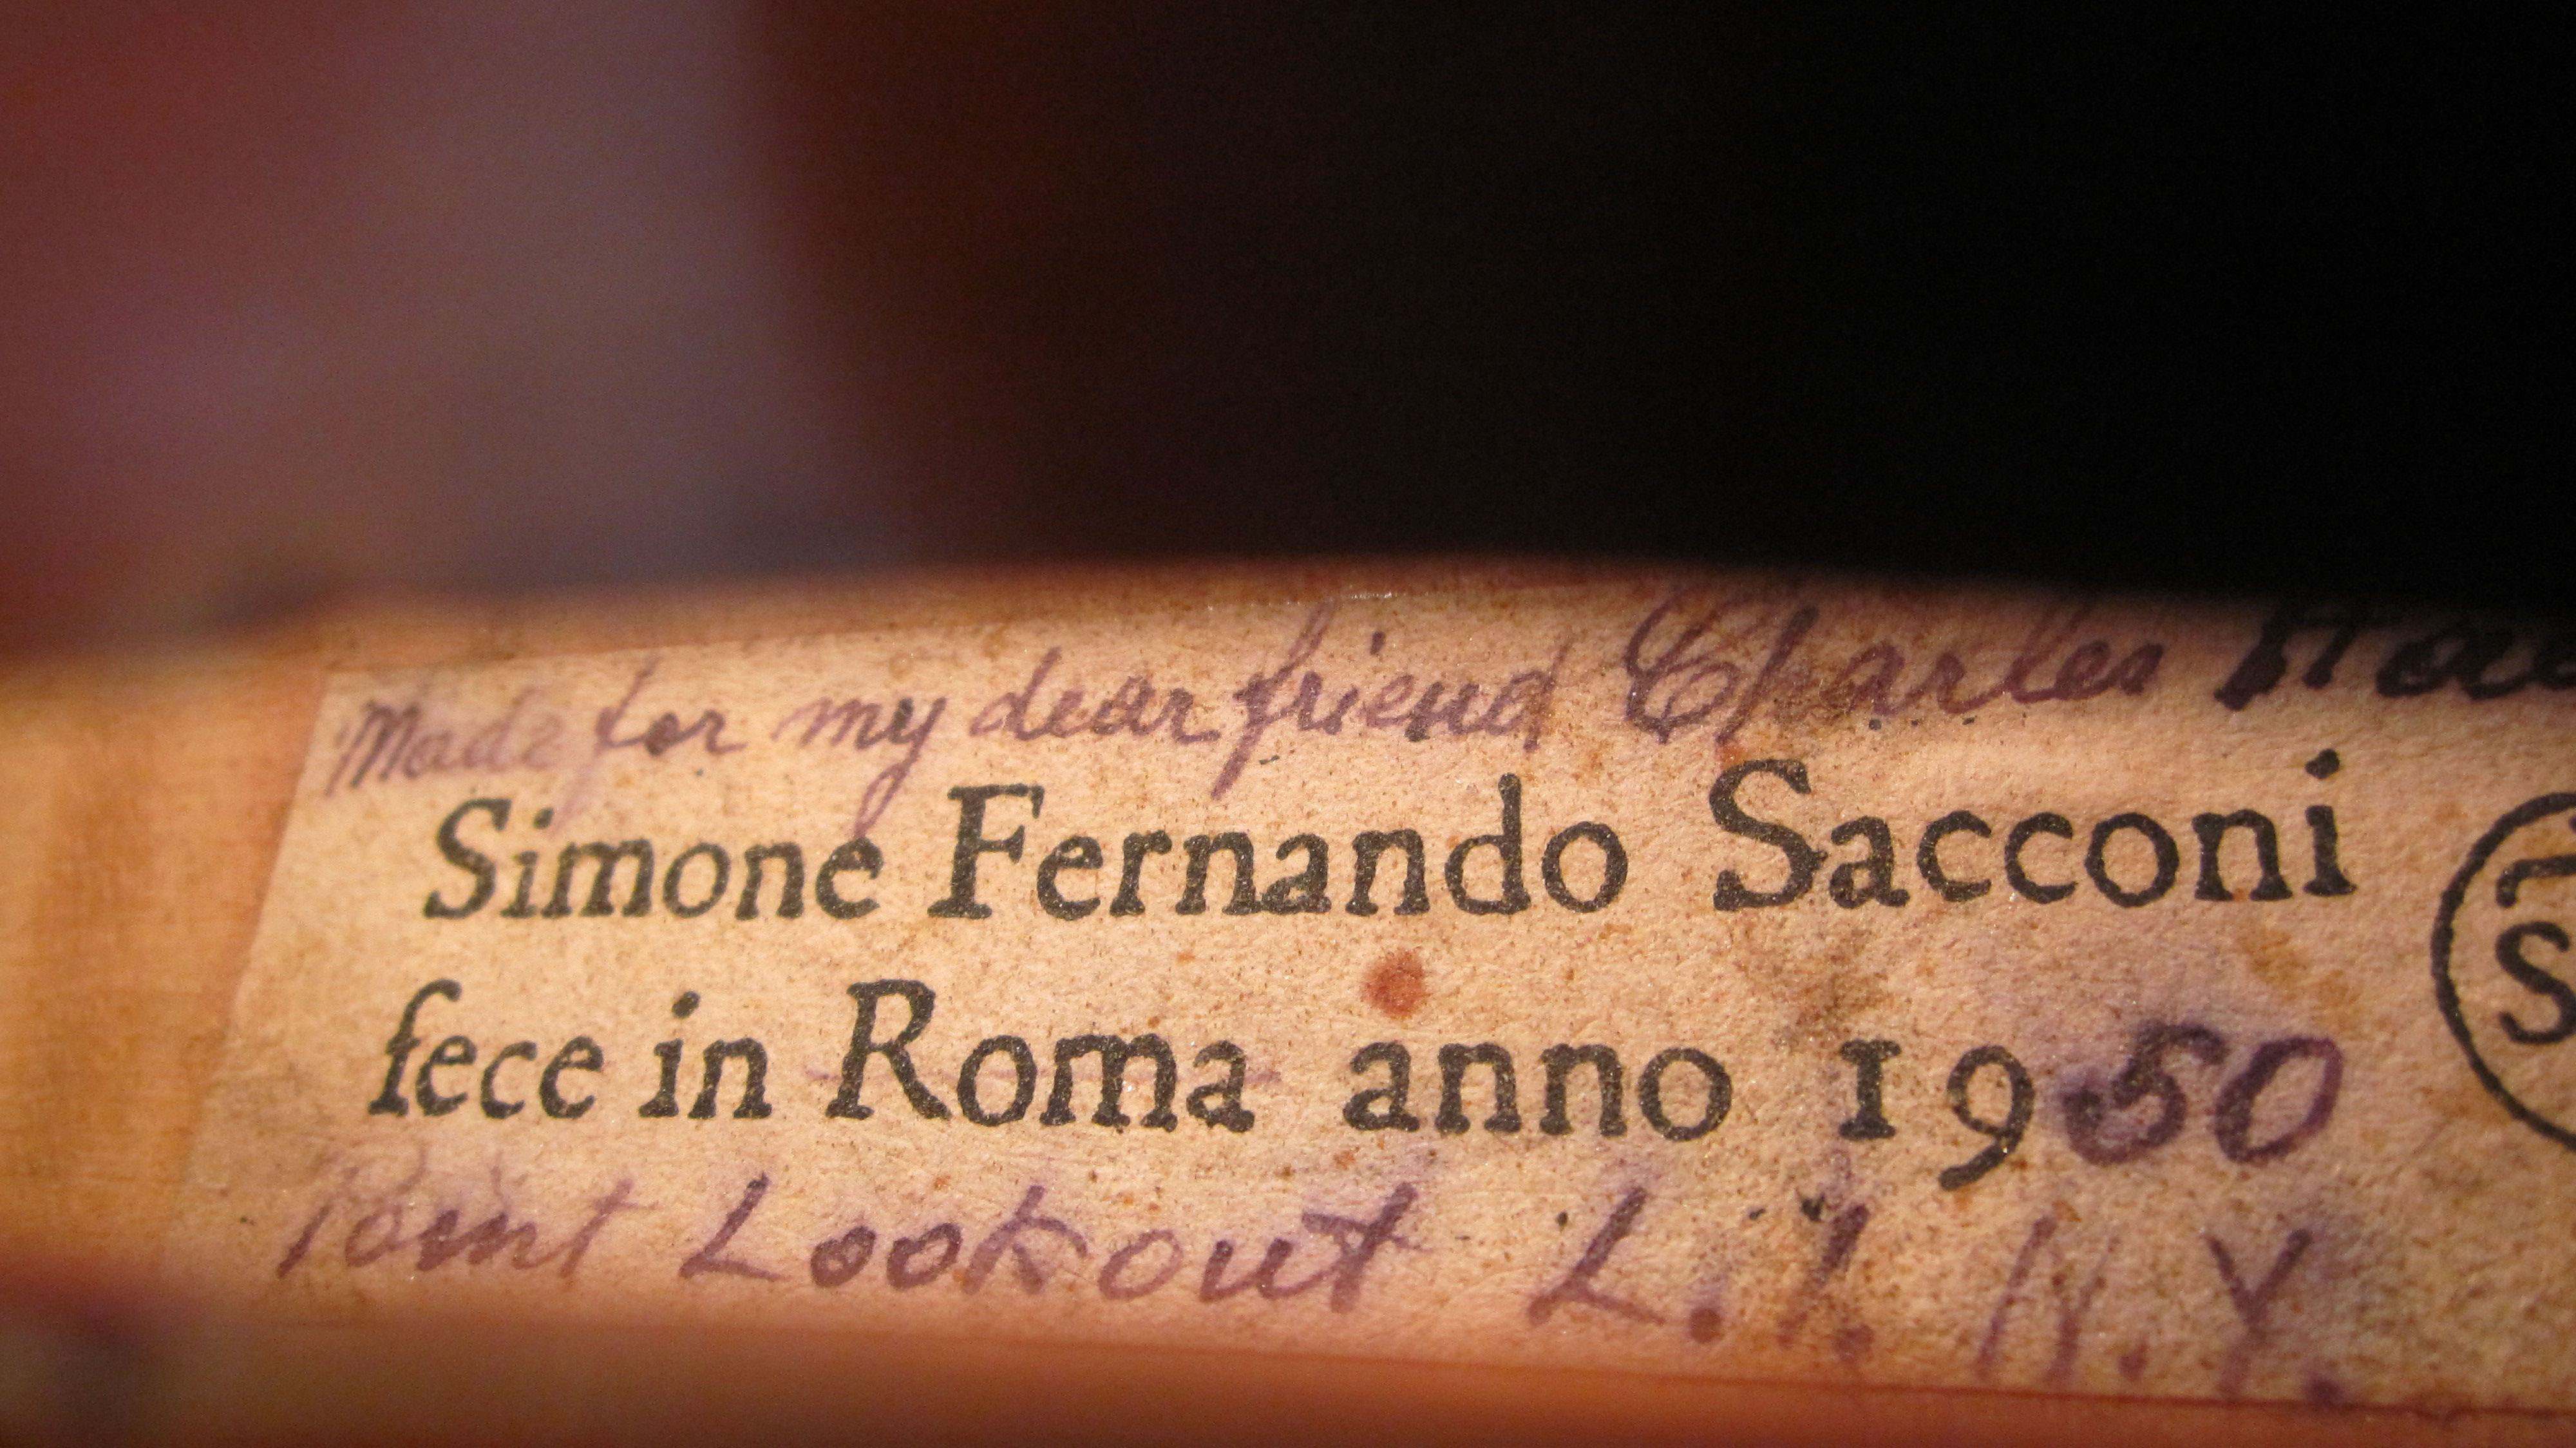 Made for my dear friend Charles
Simone Fernando Sacconi
fece in Roma anno 1950
Point Lookout L.I. N.Y.
S